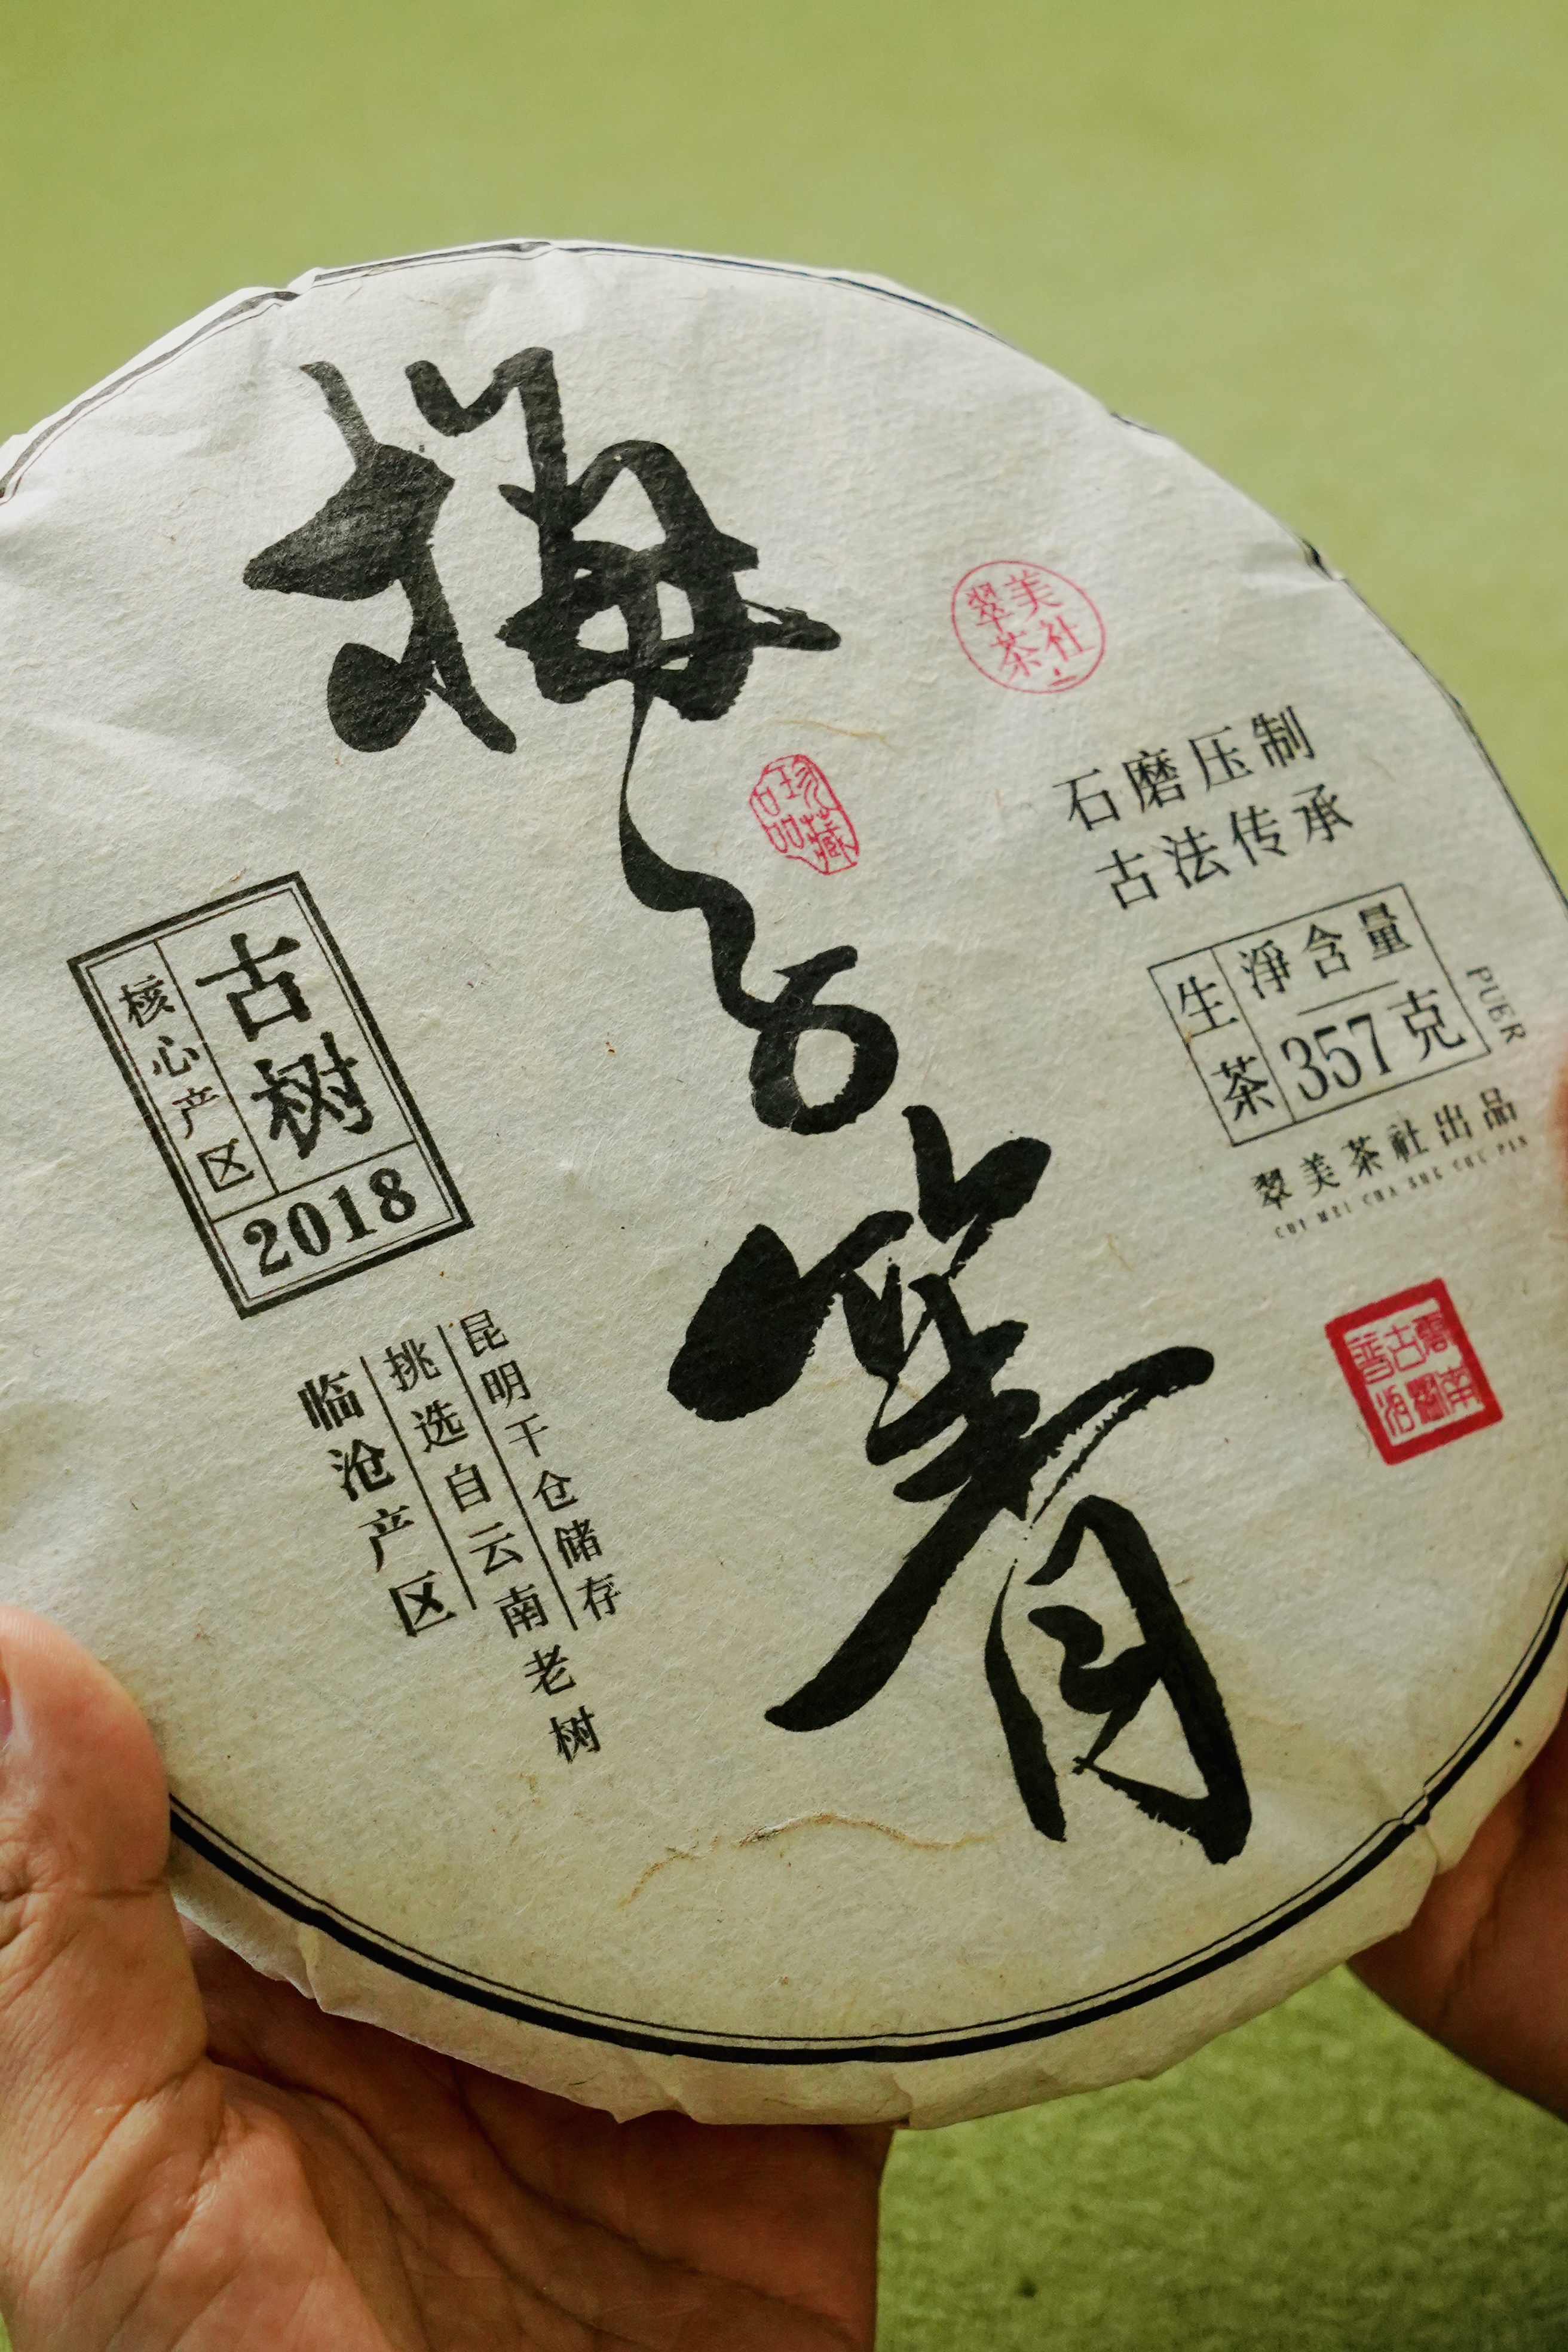 梅子箐
翠美
茶社
珍藏
品
石磨压制
古法传承
生茶
淨含量
357克
PUER
翠美茶社出品
CUI MEI CHA SHE CHU PIN
古树
核心产区
2018
昆明干仓储存
挑选自云南老树
临沧产区